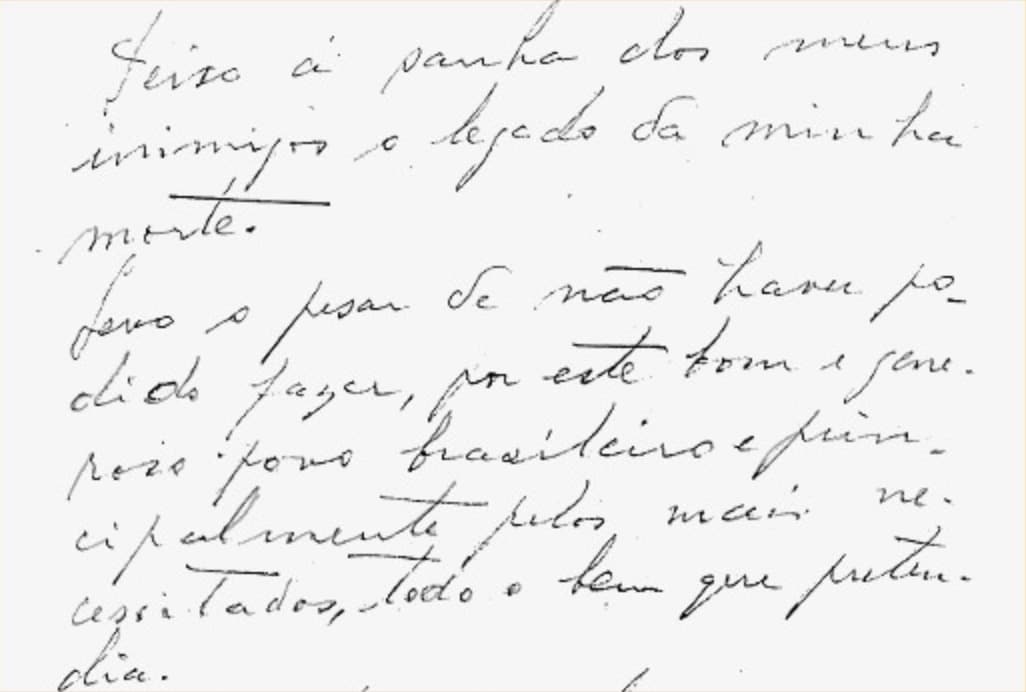 Deixo á sanha dos meus
inimigos o legado da minha
morte.
Levo o pesar de não haver po-
dido fazer, por este bom e gene-
roso povo brasileiro e prin-
cipalmente pelos mais ne-
cessitados, todo o bem que preten-
dia.